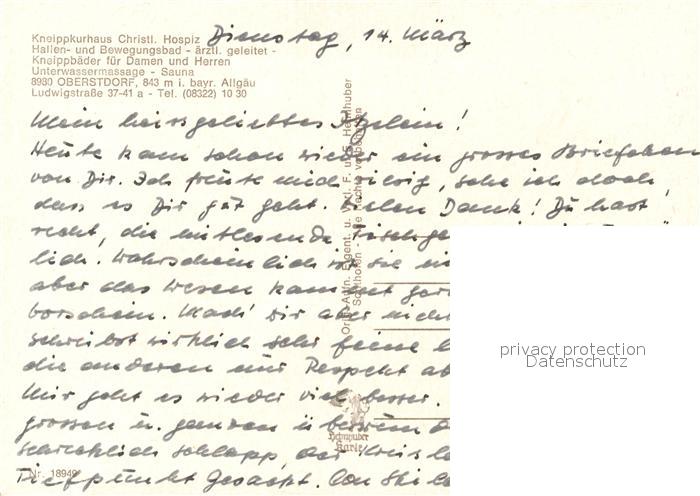 Kneippkurhaus Christl. Hospiz
Hallen- und Bewegungsbad - ärztl. geleitet -
Kneippbäder für Damen und Herren
Unterwassermassage - Sauna
8980 OBERSTDORF, 843 m i. bayr. Allgäu
Ludwigstraße 37-41 a - Tel. (08322) 10 30
Dienstag, 14. März
Mein heissgeliebtes
Heute kam schon wieder ein grosses
von Dir. Ich freute mich riesig, sehe ich doch,
dass es Dir gut geht. Vielen Dank! Du hast
recht, die mitlesende
lich. Wahrscheinlich ist sie
aber das Wesen kommt
vorschein. Mach' Dir aber nicht
schreibst wirklich sehr feine
die anderen nur Respekt
Mir geht es wieder viel besser.
grossen u. ganzen
schrecklich schlapp, der
Tiefpunkt gesackt. Von
Helmhuber
Karte
Nr. 18949
privacy protection
Datenschutz